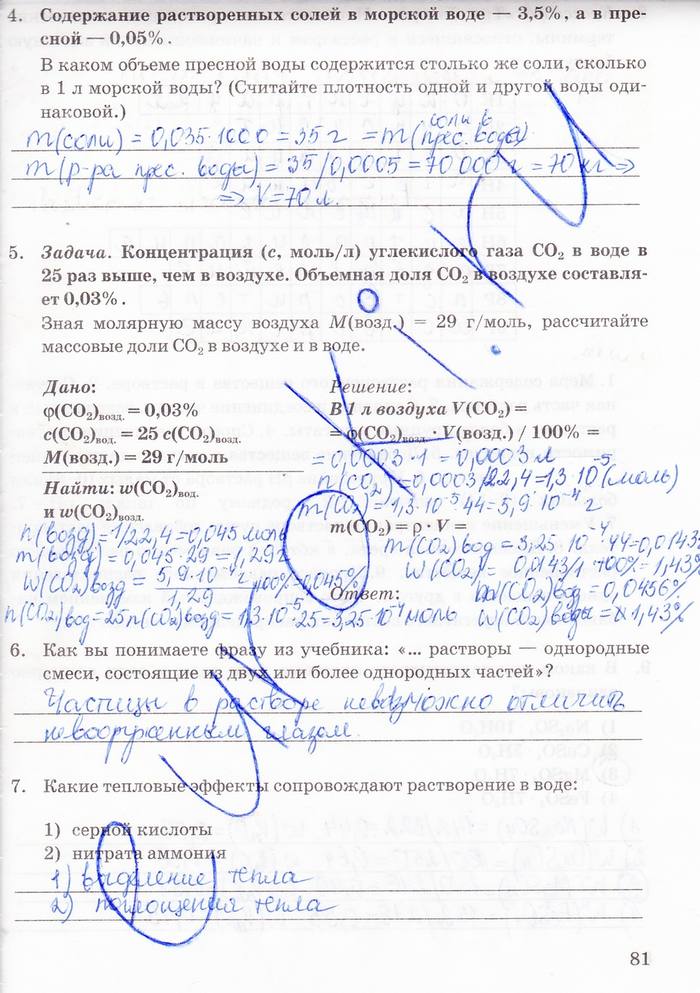 4. Содержание растворенных солей в морской воде — 3,5%, а в пре-
сной — 0,05%.
В каком объеме пресной воды содержится столько же соли, сколько
в 1 л морской воды? (Считайте плотность одной и другой воды оди-
наковой.)
m(соли) = 0,035·1000 = 35 г = m(соли в прес. воде)
m(р-ра прес. воды) = 35/0,0005 = 70 000 г = 70 кг ⇒
⇒ V = 70 л.
5. Задача. Концентрация (c, моль/л) углекислого газа CO₂ в воде в
25 раз выше, чем в воздухе. Объемная доля CO₂ в воздухе составля-
ет 0,03%.
Зная молярную массу воздуха M(возд.) = 29 г/моль, рассчитайте
массовые доли CO₂ в воздухе и в воде.
Дано:
φ(CO₂)возд. = 0,03%
c(CO₂)вод. = 25 c(CO₂)возд.
M(возд.) = 29 г/моль
Найти: w(CO₂)вод.
и w(CO₂)возд.
n(возд) = 1/22,4 = 0,045 моль
m(возд) = 0,045·29 = 1,29 г
w(CO₂)возд = 5,9·10⁻⁴/1,29 · 100% = 0,045%
Решение:
В 1 л воздуха V(CO₂) =
= φ(CO₂)возд. · V(возд.) / 100% =
= 0,0003·1 = 0,0003 л
n(CO₂) = 0,0003/22,4 = 1,3·10⁻⁵ (моль)
m(CO₂) = 1,3·10⁻⁵·44 = 5,9·10⁻⁴ г
m(CO₂) = ρ · V =
m(CO₂)вод = 3,25·10⁻⁴·44 = 0,0143
w(CO₂) = 0,0143/1 ·100% = 1,43%
Ответ: w(CO₂)вод = 0,0456%
n(CO₂)вод = 25n(CO₂)возд = 1,3·10⁻⁵·25 = 3,25·10⁻⁴ моль w(CO₂)воды = 1,43%
6. Как вы понимаете фразу из учебника: «... растворы — однородные
смеси, состоящие из двух или более однородных частей»?
Частицы в растворе невозможно отличить
невооруженным глазом.
7. Какие тепловые эффекты сопровождают растворение в воде:
1) серной кислоты
2) нитрата аммония
1) выделение тепла
2) поглощения тепла
81